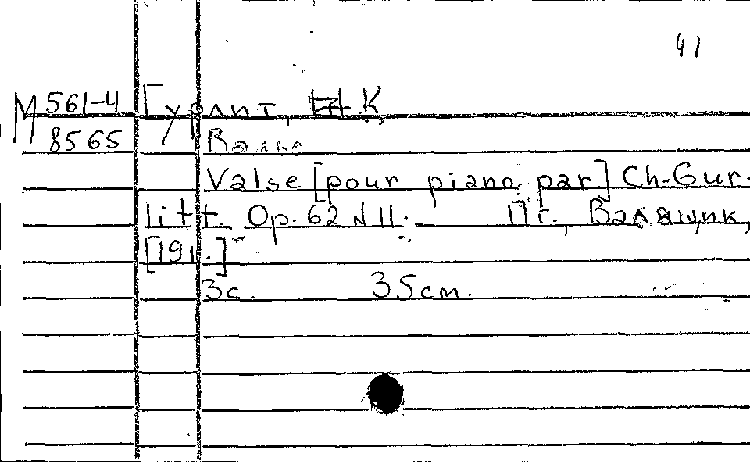 41
М 561-4 Гурлит, К.
8565 Вальс
Valse [pour piano par] Ch. Gur-
litt. Op. 62 № 11. – Пг.,
[191 .]
3с. 35 cm.